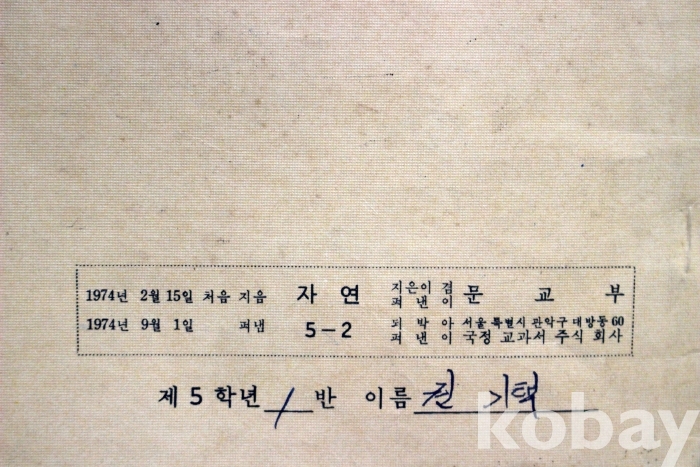 1974년 2월 15일 처음 지음 자연 지은이 겸 펴낸이 문교부
1974년 9월 1일 펴냄 5-2 되박아 펴낸이 서울 특별시 관악구 대방동 60 국정 교과서 주식 회사
제 5 학년 1 반 이름 기택
kobay